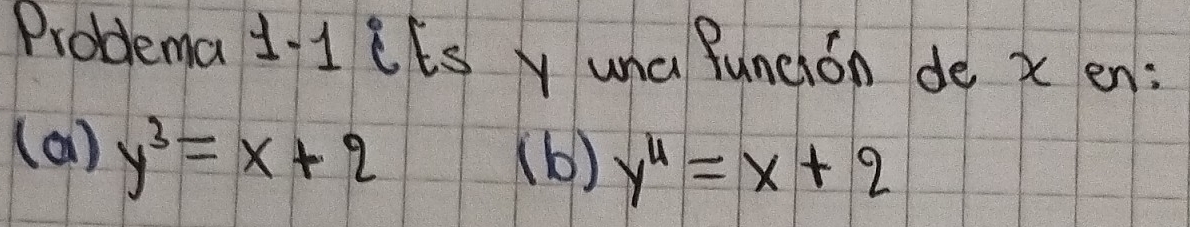 Problema 1-1 ¿Es y una función de x en:
(a) y³ = x + 2 (b) y⁴ = x + 2